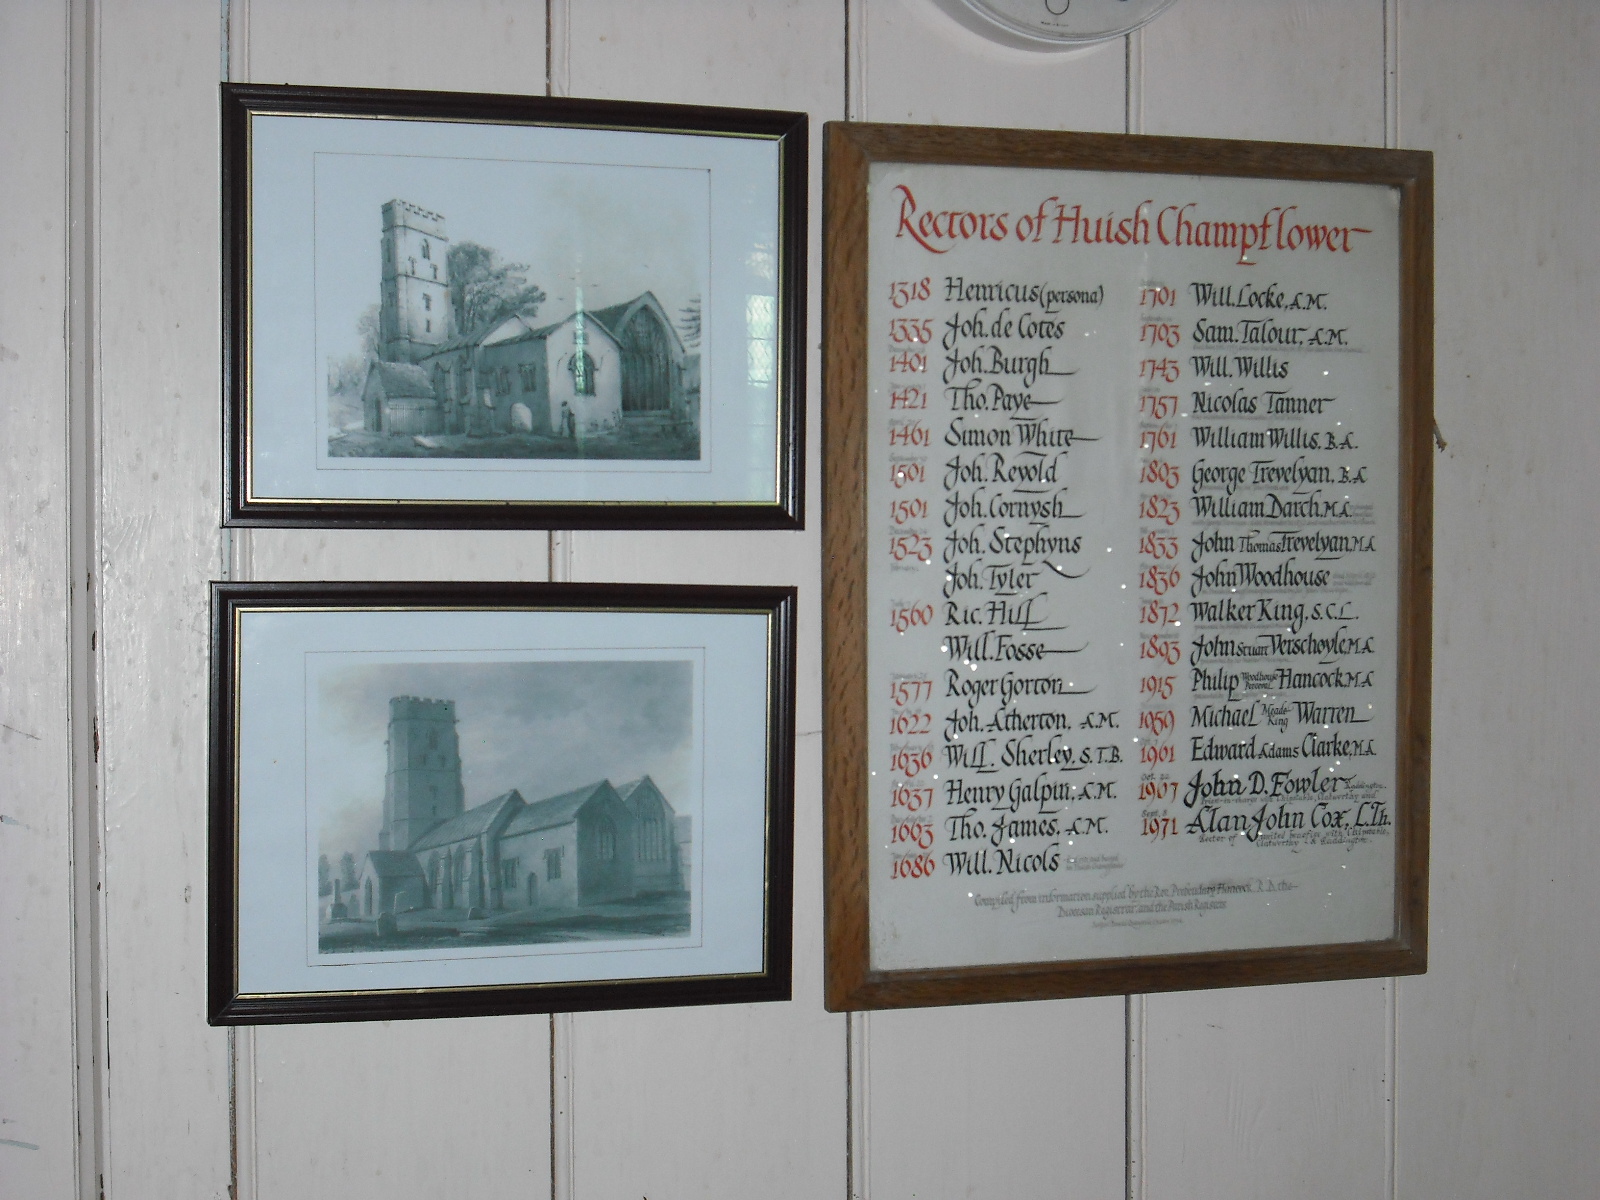 Rectors of Huish Champflower
1318 Henricus (persona)
1335 Joh. de Cotes
1401 Joh. Burgh
1421 Tho. Paye
1461 Simon White
1501 Joh. Revold
1501 Joh. Cornysh
1523 Joh. Stephyns
Joh. Tyler
1560 Ric. Hill
Will. Fosse
1577 Roger Gorton
1622 Joh. Atherton, A.M.
1636 Will. Sherley, S.T.B.
1637 Henry Galpin, A.M.
1663 Tho. James, A.M.
1686 Will. Nicols
1701 Will. Locke, A.M.
1703 Sam. Talour, A.M.
1743 Will. Willis
1757 Nicolas Tanner
1761 William Willis, B.A.
1803 George Trevelyan, B.A.
1823 William Darch, M.A.
1833 John Thomas Trevelyan, M.A.
1836 John Woodhouse
1872 Walker King, S.C.L.
1893 John Stuart Verschoyle, M.A.
1915 Philip Woodhouse Hancock, M.A.
1959 Michael Meade-King Warren
1961 Edward Adams Clarke, M.A.
Oct. 22
1967 John D. Fowler
Sept. 8
1971 Alan John Cox, L.Th.
Rector of united benefice with Chipstable,
Clatworthy & Raddington.
Compiled from information supplied by the Rev. Prebendary Hancock, R.D. the
Diocesan Registrar and the Parish Registers